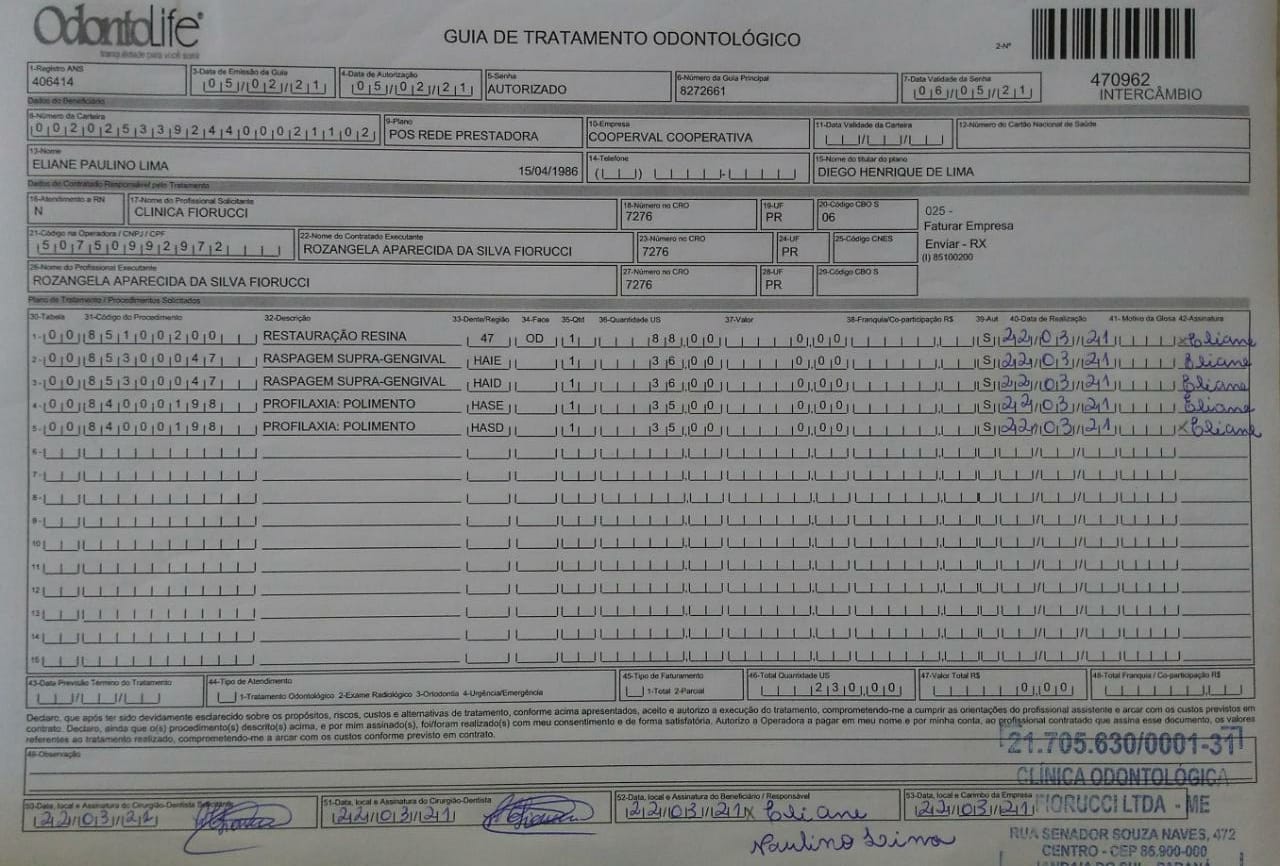 OdontoLife
tranquilidade para você sorrir
GUIA DE TRATAMENTO ODONTOLÓGICO
2-Nº
470962
INTERCÂMBIO
1-Registro ANS 3-Data de Emissão da Guia 4-Data de Autorização 5-Senha 6-Número da Guia Principal 7-Data Validade da Senha
406414 05/02/21 05/02/21 AUTORIZADO 8272661 06/05/21
Dados do Beneficiário
8-Número da Carteira 9-Plano 10-Empresa 11-Data Validade da Carteira 12-Número do Cartão Nacional de Saúde
00202533924400021102 POS REDE PRESTADORA COOPERVAL COOPERATIVA
13-Nome 14-Telefone 15-Nome do titular do plano
ELIANE PAULINO LIMA 15/04/1986 DIEGO HENRIQUE DE LIMA
Dados do Contratado Responsável pelo Tratamento
16-Atendimento a RN 17-Nome do Profissional Solicitante 18-Número no CRO 19-UF 20-Código CBO S
N CLINICA FIORUCCI 7276 PR 06
025 -
Faturar Empresa
Enviar - RX
(I) 85100200
21-Código na Operadora / CNPJ / CPF 22-Nome do Contratado Executante 23-Número no CRO 24-UF 25-Código CNES
50750992972 ROZANGELA APARECIDA DA SILVA FIORUCCI 7276 PR
26-Nome do Profissional Executante 27-Número no CRO 28-UF 29-Código CBO S
ROZANGELA APARECIDA DA SILVA FIORUCCI 7276 PR
Plano de Tratamento / Procedimentos Solicitados
30-Tabela 31-Código do Procedimento 32-Descrição 33-Dente/Região 34-Face 35-Qtd 36-Quantidade US 37-Valor 38-Franquia/Co-participação R$ 39-Aut 40-Data de Realização 41- Motivo da Glosa 42-Assinatura
1- 00 85100200 RESTAURAÇÃO RESINA 47 OD 1 88,00 0,00 S 22/03/21 x Eliane
2- 00 85300047 RASPAGEM SUPRA-GENGIVAL HAIE 1 36,00 0,00 S 22/03/21 Eliane
3- 00 85300047 RASPAGEM SUPRA-GENGIVAL HAID 1 36,00 0,00 S 22/03/21 Eliane
4- 00 84000198 PROFILAXIA: POLIMENTO HASE 1 35,00 0,00 S 22/03/21 Eliane
5- 00 84000198 PROFILAXIA: POLIMENTO HASD 1 35,00 0,00 S 22/03/21 x Eliane
6-
7-
8-
9-
10
11
12
13
14
15
43-Data Previsão Término do Tratamento 44-Tipo de Atendimento 45-Tipo de Faturamento 46-Total Quantidade US 47-Valor Total R$ 48-Total Franquia / Co-participação R$
1-Tratamento Odontológico 2-Exame Radiológico 3-Ortodontia 4-Urgência/Emergência 1-Total 2-Parcial 230,00 0,00
Declaro, que após ter sido devidamente esclarecido sobre os propósitos, riscos, custos e alternativas de tratamento, conforme acima apresentados, aceito e autorizo a execução do tratamento, comprometendo-me a cumprir as orientações do profissional assistente e arcar com os custos previstos em
contrato. Declaro, ainda que o(s) procedimento(s) descrito(s) acima, e por mim assinado(s), foi/foram realizado(s) com meu consentimento e de forma satisfatória. Autorizo a Operadora a pagar em meu nome e por minha conta, ao profissional contratado que assina esse documento, os valores
referentes ao tratamento realizado, comprometendo-me a arcar com os custos conforme previsto em contrato.
49-Observação
21.705.630/0001-31
CLÍNICA ODONTOLÓGICA
50-Data, local e Assinatura do Cirurgião-Dentista Solicitante 51-Data, local e Assinatura do Cirurgião-Dentista 52-Data, local e Assinatura do Beneficiário / Responsável 53-Data, local e Carimbo da Empresa
22/03/21 22/03/21 22/03/21 x Eliane 22/03/21 FIORUCCI LTDA - ME
Paulino Lima
RUA SENADOR SOUZA NAVES, 472
CENTRO - CEP 86.900-000